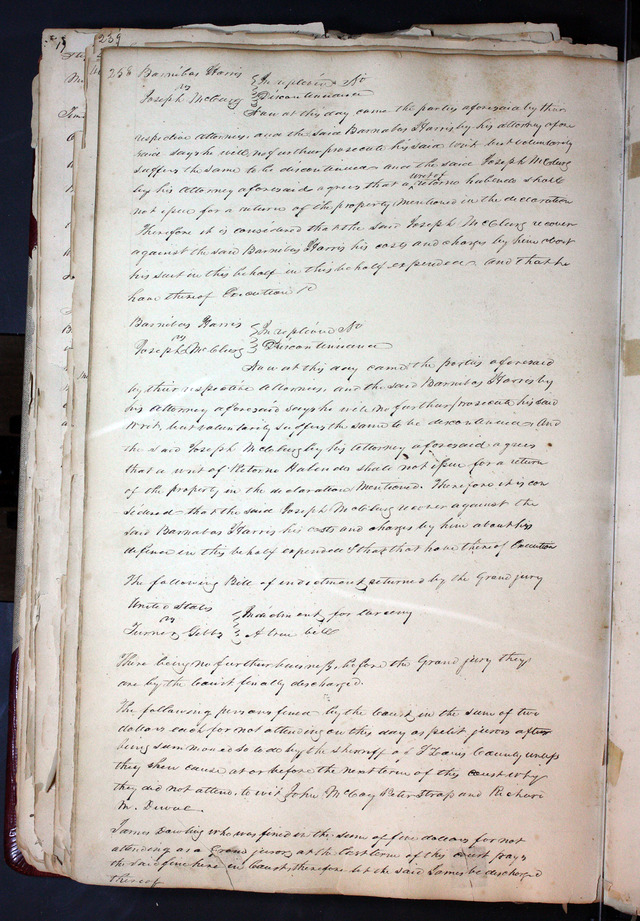 239
238 Barnibas Harris } In replevin No
vs
Joseph McClurg } Discontinuance
Now at this day came the parties aforesaid by their
respective Attorneys, and the said Barnabas Harris by his attorney afore
said says he will no further prosecute his said writ but voluntarily
suffers the same to be discontinued and the said Joseph McClurg
by his Attorney aforesaid agrees that a writ of retorno habendo shall
not issue for a return of the property mentioned in the declaration
Therefore it is considered that the said Joseph McClurg recover
against the said Barnibas Harris his costs and charges by him about
his suit in this behalf in this behalf expended and that he
have thereof Execution &c
Barnibas Harris } In replevin No
vs
Joseph McClurg } Discontinuance
Now at this day came the parties aforesaid
by their respective Attorneys, and the said Barnabas Harris by
his Attorney aforesaid says he will no further prosecute his said
writ but voluntarily suffers the same to be discontinued And
the said Joseph McClurg by his Attorney aforesaid agrees
that a writ of Retorno Habendo shall not issue for a return
of the property in the declaration Mentioned. Therefore it is con
sidered that the said Joseph McClurg recover against the
said Barnabas Harris his costs and charges by him about his
defence in this behalf expended & that that have thereof Execution
The following Bill of indictment returned by the Grand jury
United States } Indictment for larceny
vs
Turner Gibbs } A true bill
There being no further business before the Grand jury they
are by the Court finally discharged.
The following persons fined by the Court in the sum of two
dollars each for not attending on this day as petit jurors after
being summoned so to do by the Sheriff of St Louis County unless
they shew cause at or before the next term of this court why
they did not attend, to wit John McCay Peter Strap and Richard
M. Duval
James Dowling who was fined in the sum of five dollars for not
attending as a Grand juror at the last term of this court pays
the said fine here in Court, therefore let the said James be discharged
thereof